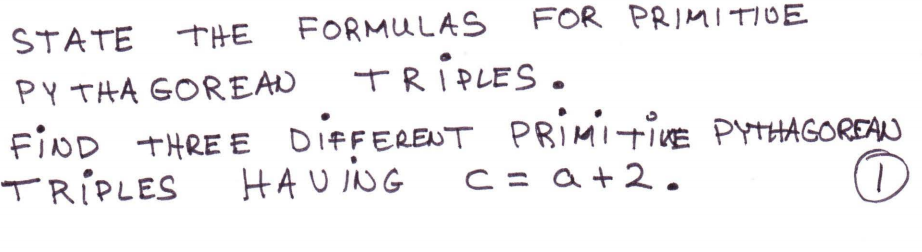 STATE THE FORMULAS FOR PRIMITIVE
PYTHAGOREAN TRIPLES.
FIND THREE DIFFERENT PRIMITIVE PYTHAGOREAN
TRIPLES HAVING c = a + 2. ①